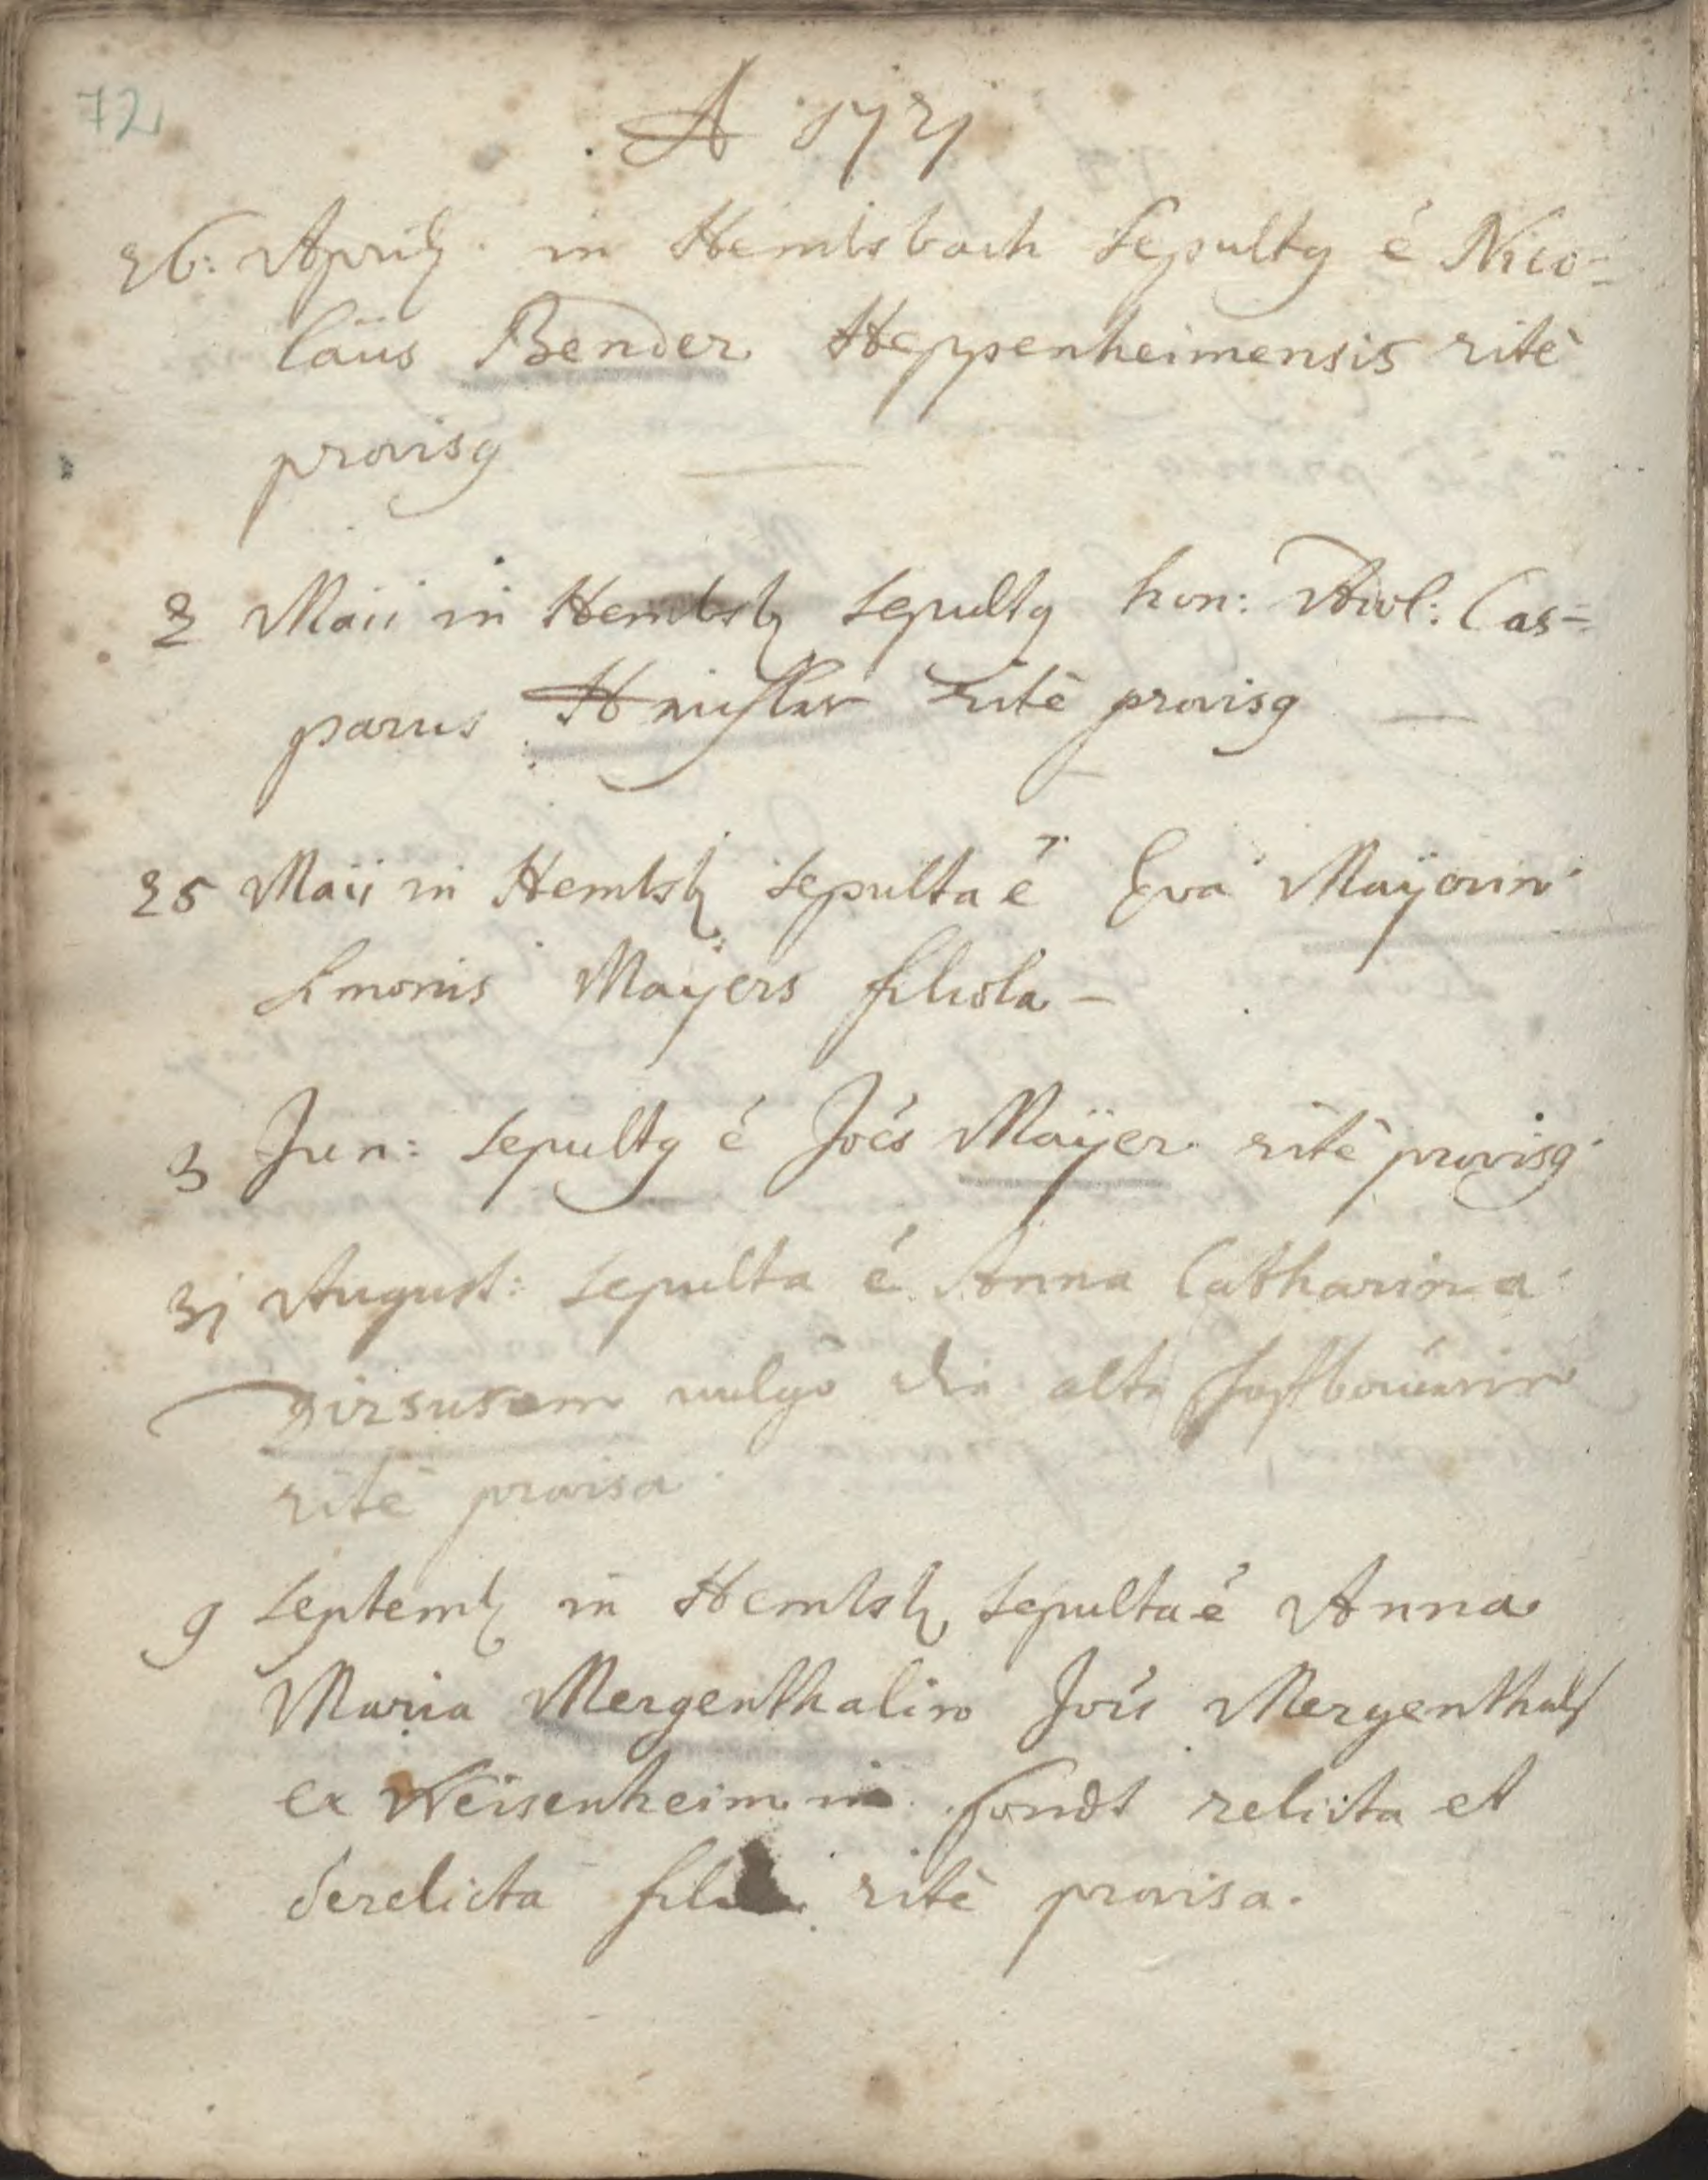 72
A 1721
26: Aprilis in Hembsbach sepultg é Nico=
laüs Bender Heppenheimensis ritè
provisg
2 Maii in Hembsb sepultg hon: Adol: Cas=
parus ritè provisg
25 Maii in Hembsb sepulta é Eva Maÿerin
Simonis Maÿers filiola
3 Jun: sepultg é Joes Maÿer ritè provisg
31 August: sepulta é Anna Catharina
vulgò die alte Hoffbäuerin
ritè provisa
9 Septemb in Hembsb sepulta é Anna
Maria Mergenthalin Jois Mergenthals
ex Weisenheim in Sondt relicta et
derelicta filia ritè provisa.